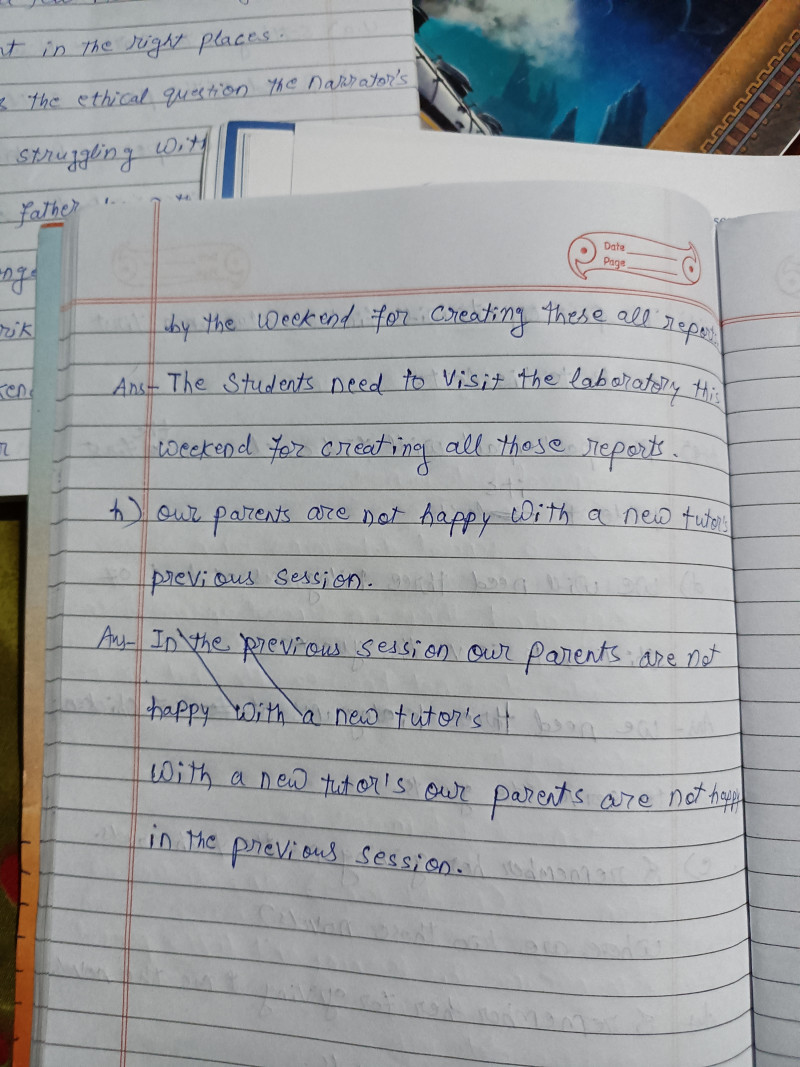 in the right places.
the ethical question the narrator's
struggling with
father
Date
Page
by the weekend for creating these all
Ans- The Students need to visit the laboratory this
weekend for creating all those reports.
h) our parents are not happy with a new tutor's
previous session.
Ans- In the previous session our parents are not
happy with a new tutor's
with a new tutor's our parents are not happy
in the previous session.